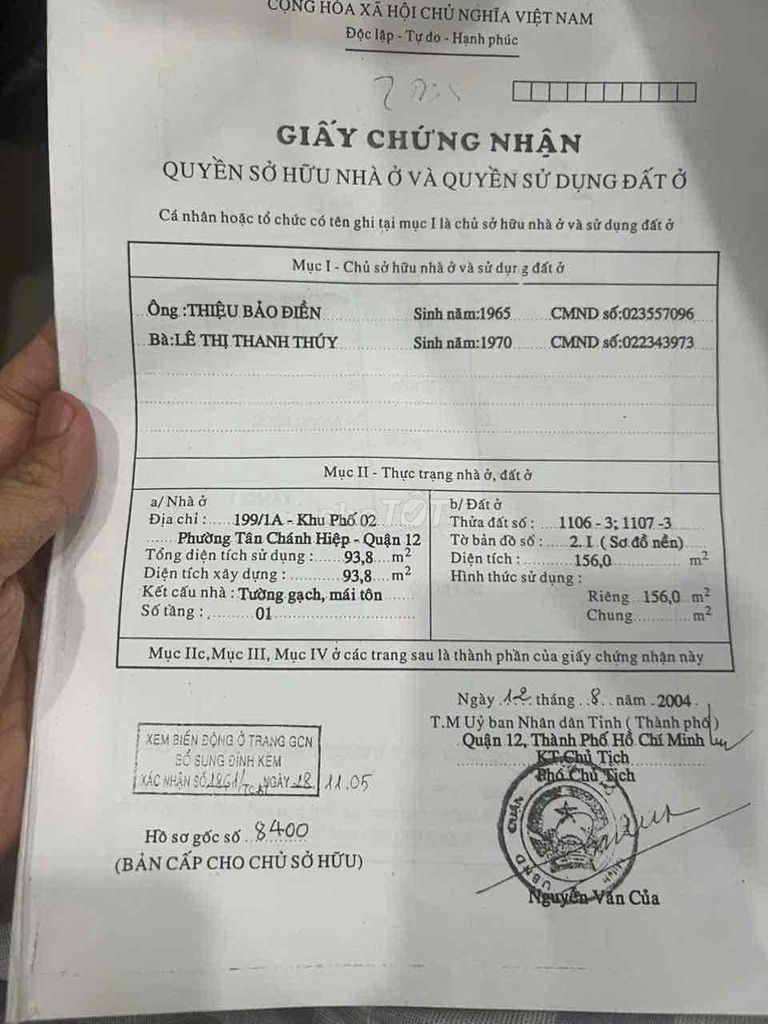 CỘNG HÒA XÃ HỘI CHỦ NGHĨA VIỆT NAM
Độc lập - Tự do - Hạnh phúc
GIẤY CHỨNG NHẬN
QUYỀN SỞ HỮU NHÀ Ở VÀ QUYỀN SỬ DỤNG ĐẤT Ở
Cá nhân hoặc tổ chức có tên ghi tại mục I là chủ sở hữu nhà ở và sử dụng đất ở
Mục I - Chủ sở hữu nhà ở và sử dụng đất ở
Ông :THIỆU BẢO ĐIỀN Sinh năm:1965 CMND số:023557096
Bà:LÊ THỊ THANH THÚY Sinh năm:1970 CMND số:022343973
Mục II - Thực trạng nhà ở, đất ở
a/ Nhà ở
Địa chỉ : 199/1A - Khu Phố 02
Phường Tân Chánh Hiệp - Quận 12
Tổng diện tích sử dụng : 93,8 m²
Diện tích xây dựng : 93,8 m²
Kết cấu nhà : Tường gạch, mái tôn
Số tầng : 01
b/ Đất ở
Thửa đất số : 1106 - 3; 1107 -3
Tờ bản đồ số : 2. I ( Sơ đồ nền)
Diện tích : 156,0 m²
Hình thức sử dụng :
Riêng 156,0 m²
Chung m²
Mục IIc,Mục III, Mục IV ở các trang sau là thành phần của giấy chứng nhận này
Ngày 12 tháng 8 năm 2004
T.M Uỷ ban Nhân dân Tỉnh ( Thành phố )
Quận 12, Thành Phố Hồ Chí Minh
KT.Chủ Tịch
Phó Chủ Tịch
XEM BIẾN ĐỘNG Ở TRANG GCN
BỔ SUNG ĐÍNH KÈM
XÁC NHẬN SỐ 1861 NGÀY 28 11.05
Hồ sơ gốc số 8400
(BẢN CẤP CHO CHỦ SỞ HỮU)
UBND QUẬN
Nguyễn Văn Của